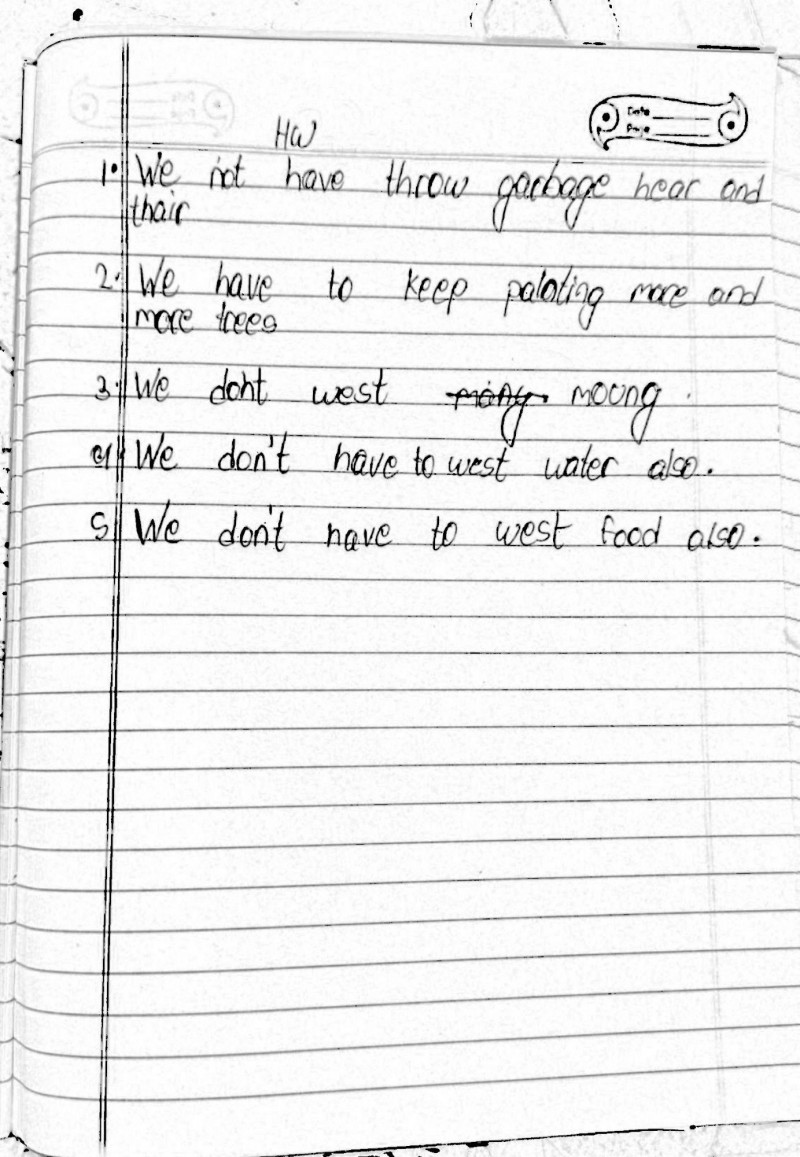 Date
Page
HW
1. We not have throw garbage hear and
thair
2. We have to keep palating more and
more trees
3. We don't west moong.
4 We don't have to west water also.
5 We don't have to west food also.